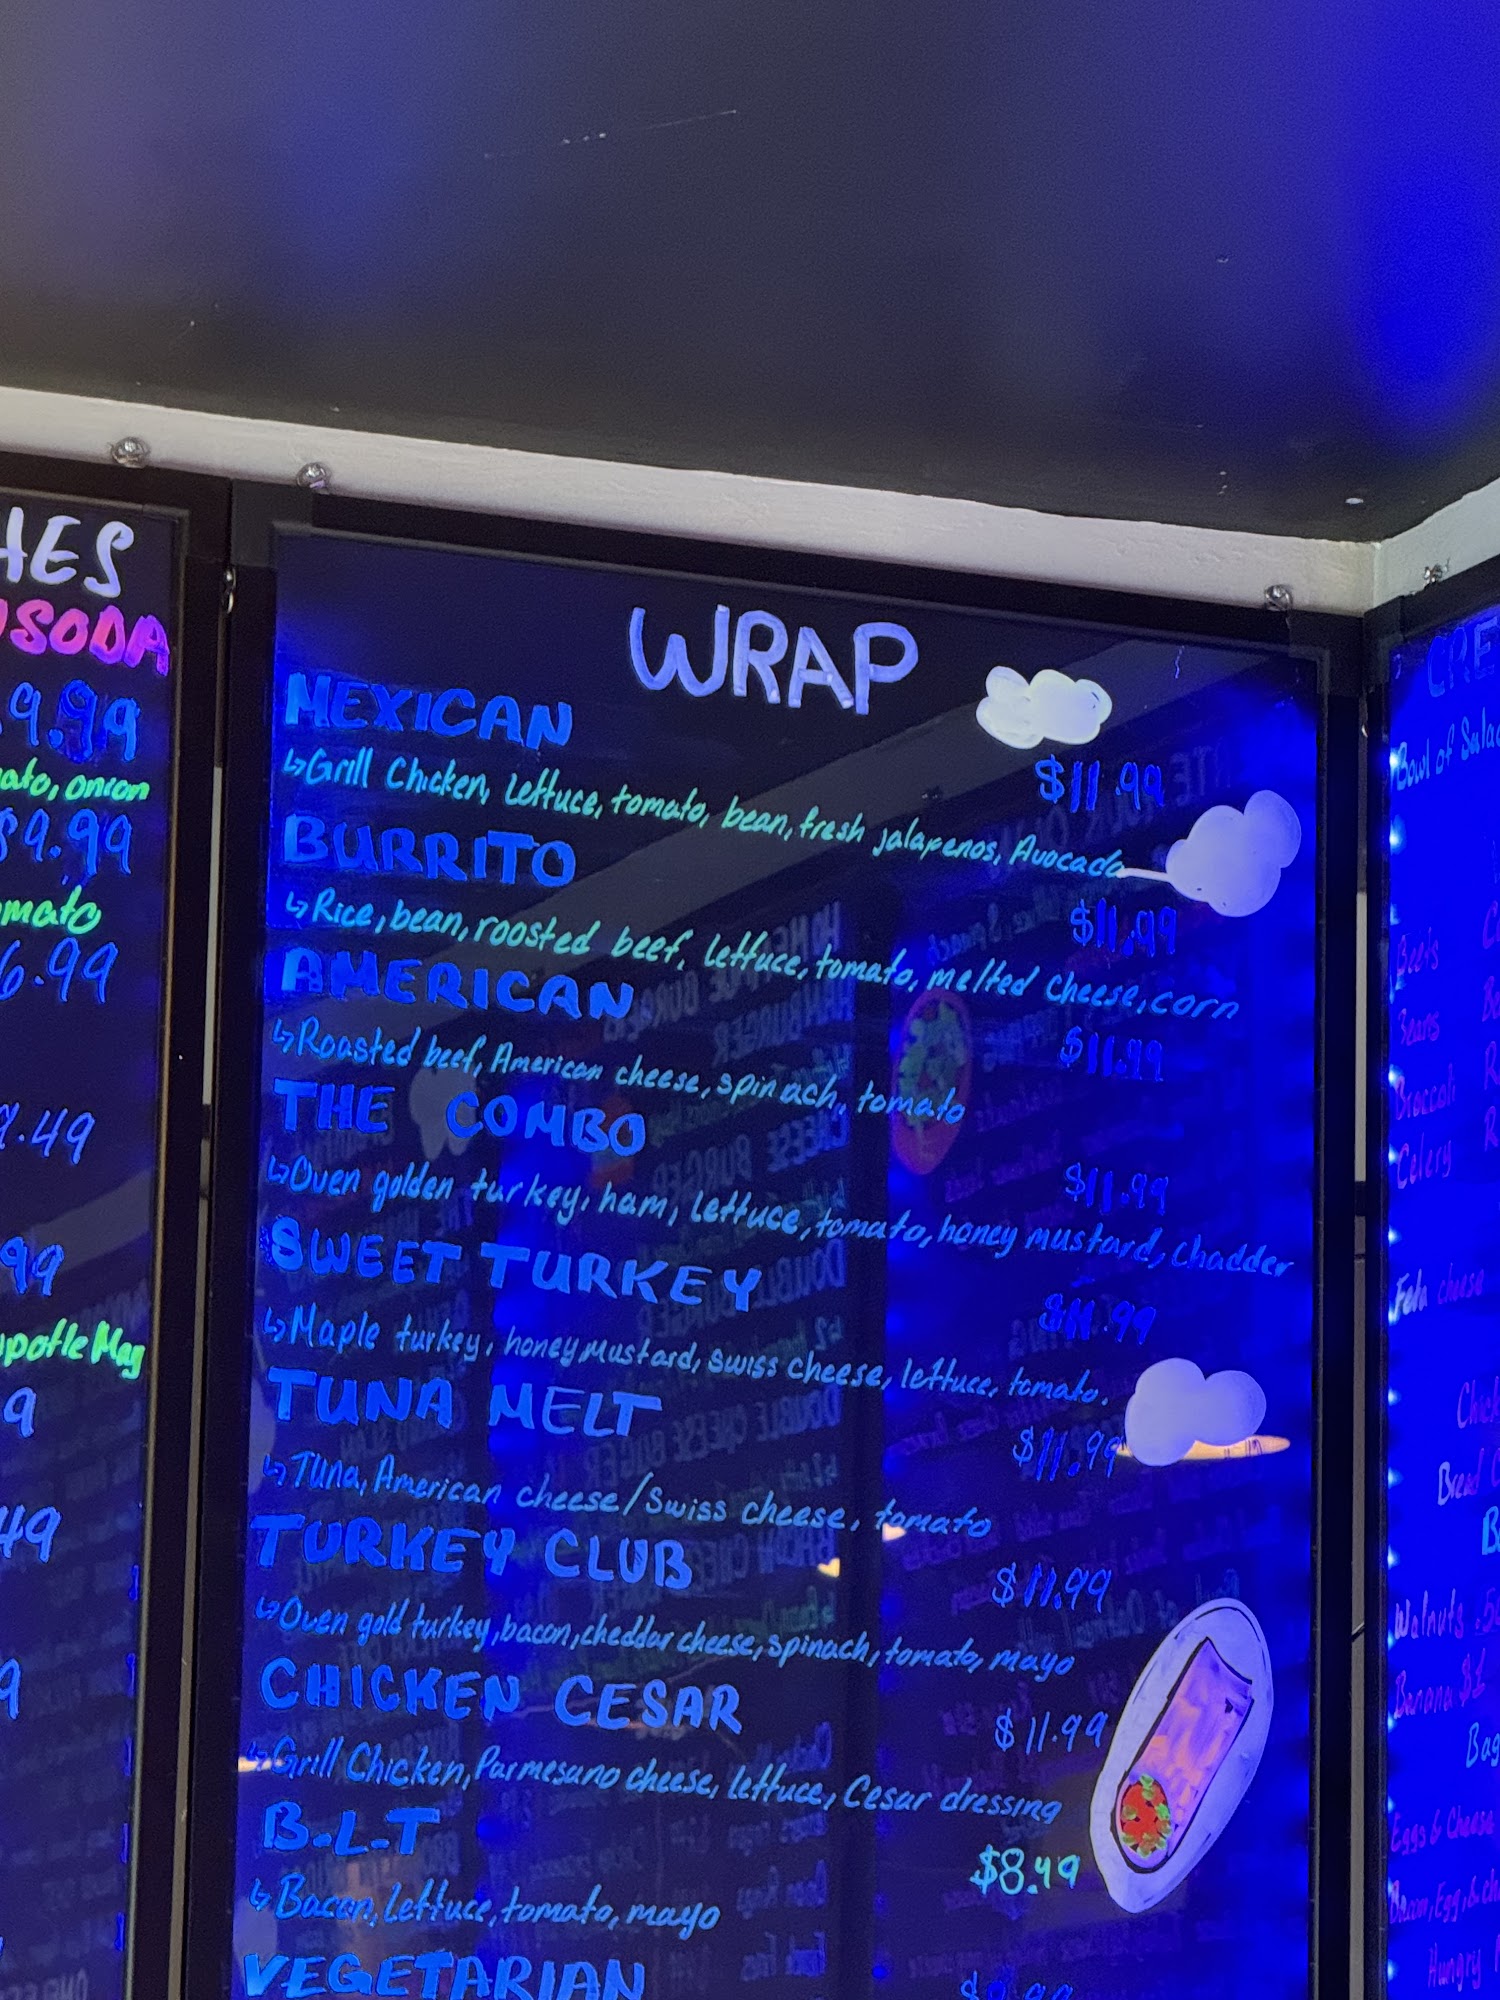 HES
SODA
9.99
ato, onion
$9.99
mato
6.99
.49
99
potle May
9
49
9
WRAP
MEXICAN
$11.99
↳Grill Chicken, Lettuce, tomato, bean, fresh jalapenos, Avocado
BURRITO
$11.99
↳Rice, bean, roosted beef, Lettuce, tomato, melted cheese, corn
AMERICAN
$11.99
↳Roasted beef, American cheese, spinach, tomato
THE COMBO
$11.99
↳Oven golden turkey, ham, Lettuce, tomato, honey mustard, chadder
SWEET TURKEY
$11.99
↳Maple turkey, honey mustard, swiss cheese, lettuce, tomato.
TUNA MELT
$11.99
↳Tuna, American cheese/Swiss cheese, tomato
TURKEY CLUB
$11.99
↳Oven gold turkey, bacon, cheddar cheese, spinach, tomato, mayo
CHICKEN CESAR
$11.99
↳Grill Chicken, Parmesano cheese, lettuce, Cesar dressing
B.L.T
$8.49
↳Bacon, Lettuce, tomato, mayo
VEGETARIAN
CRE
Bowl of Sala
Beets
Beans
Broccoli
Celery
Feta cheese
Chick
Bread
Walnuts .5
Banana $1
Bag
Eggs & Cheese
Bacon, Egg, & ch
Hungry